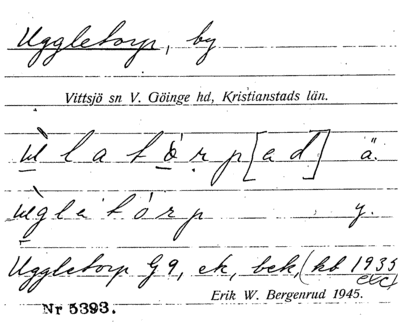 Uggletorp, by
Vittsjö sn V. Göinge hd, Kristianstads län.
ù̱latòrp[ad] ä.
ùgle tórp y.
Uggletorp G 9, ek, bek, (kb 1935
etc)
Erik W. Bergenrud 1945.
Nr 5393.